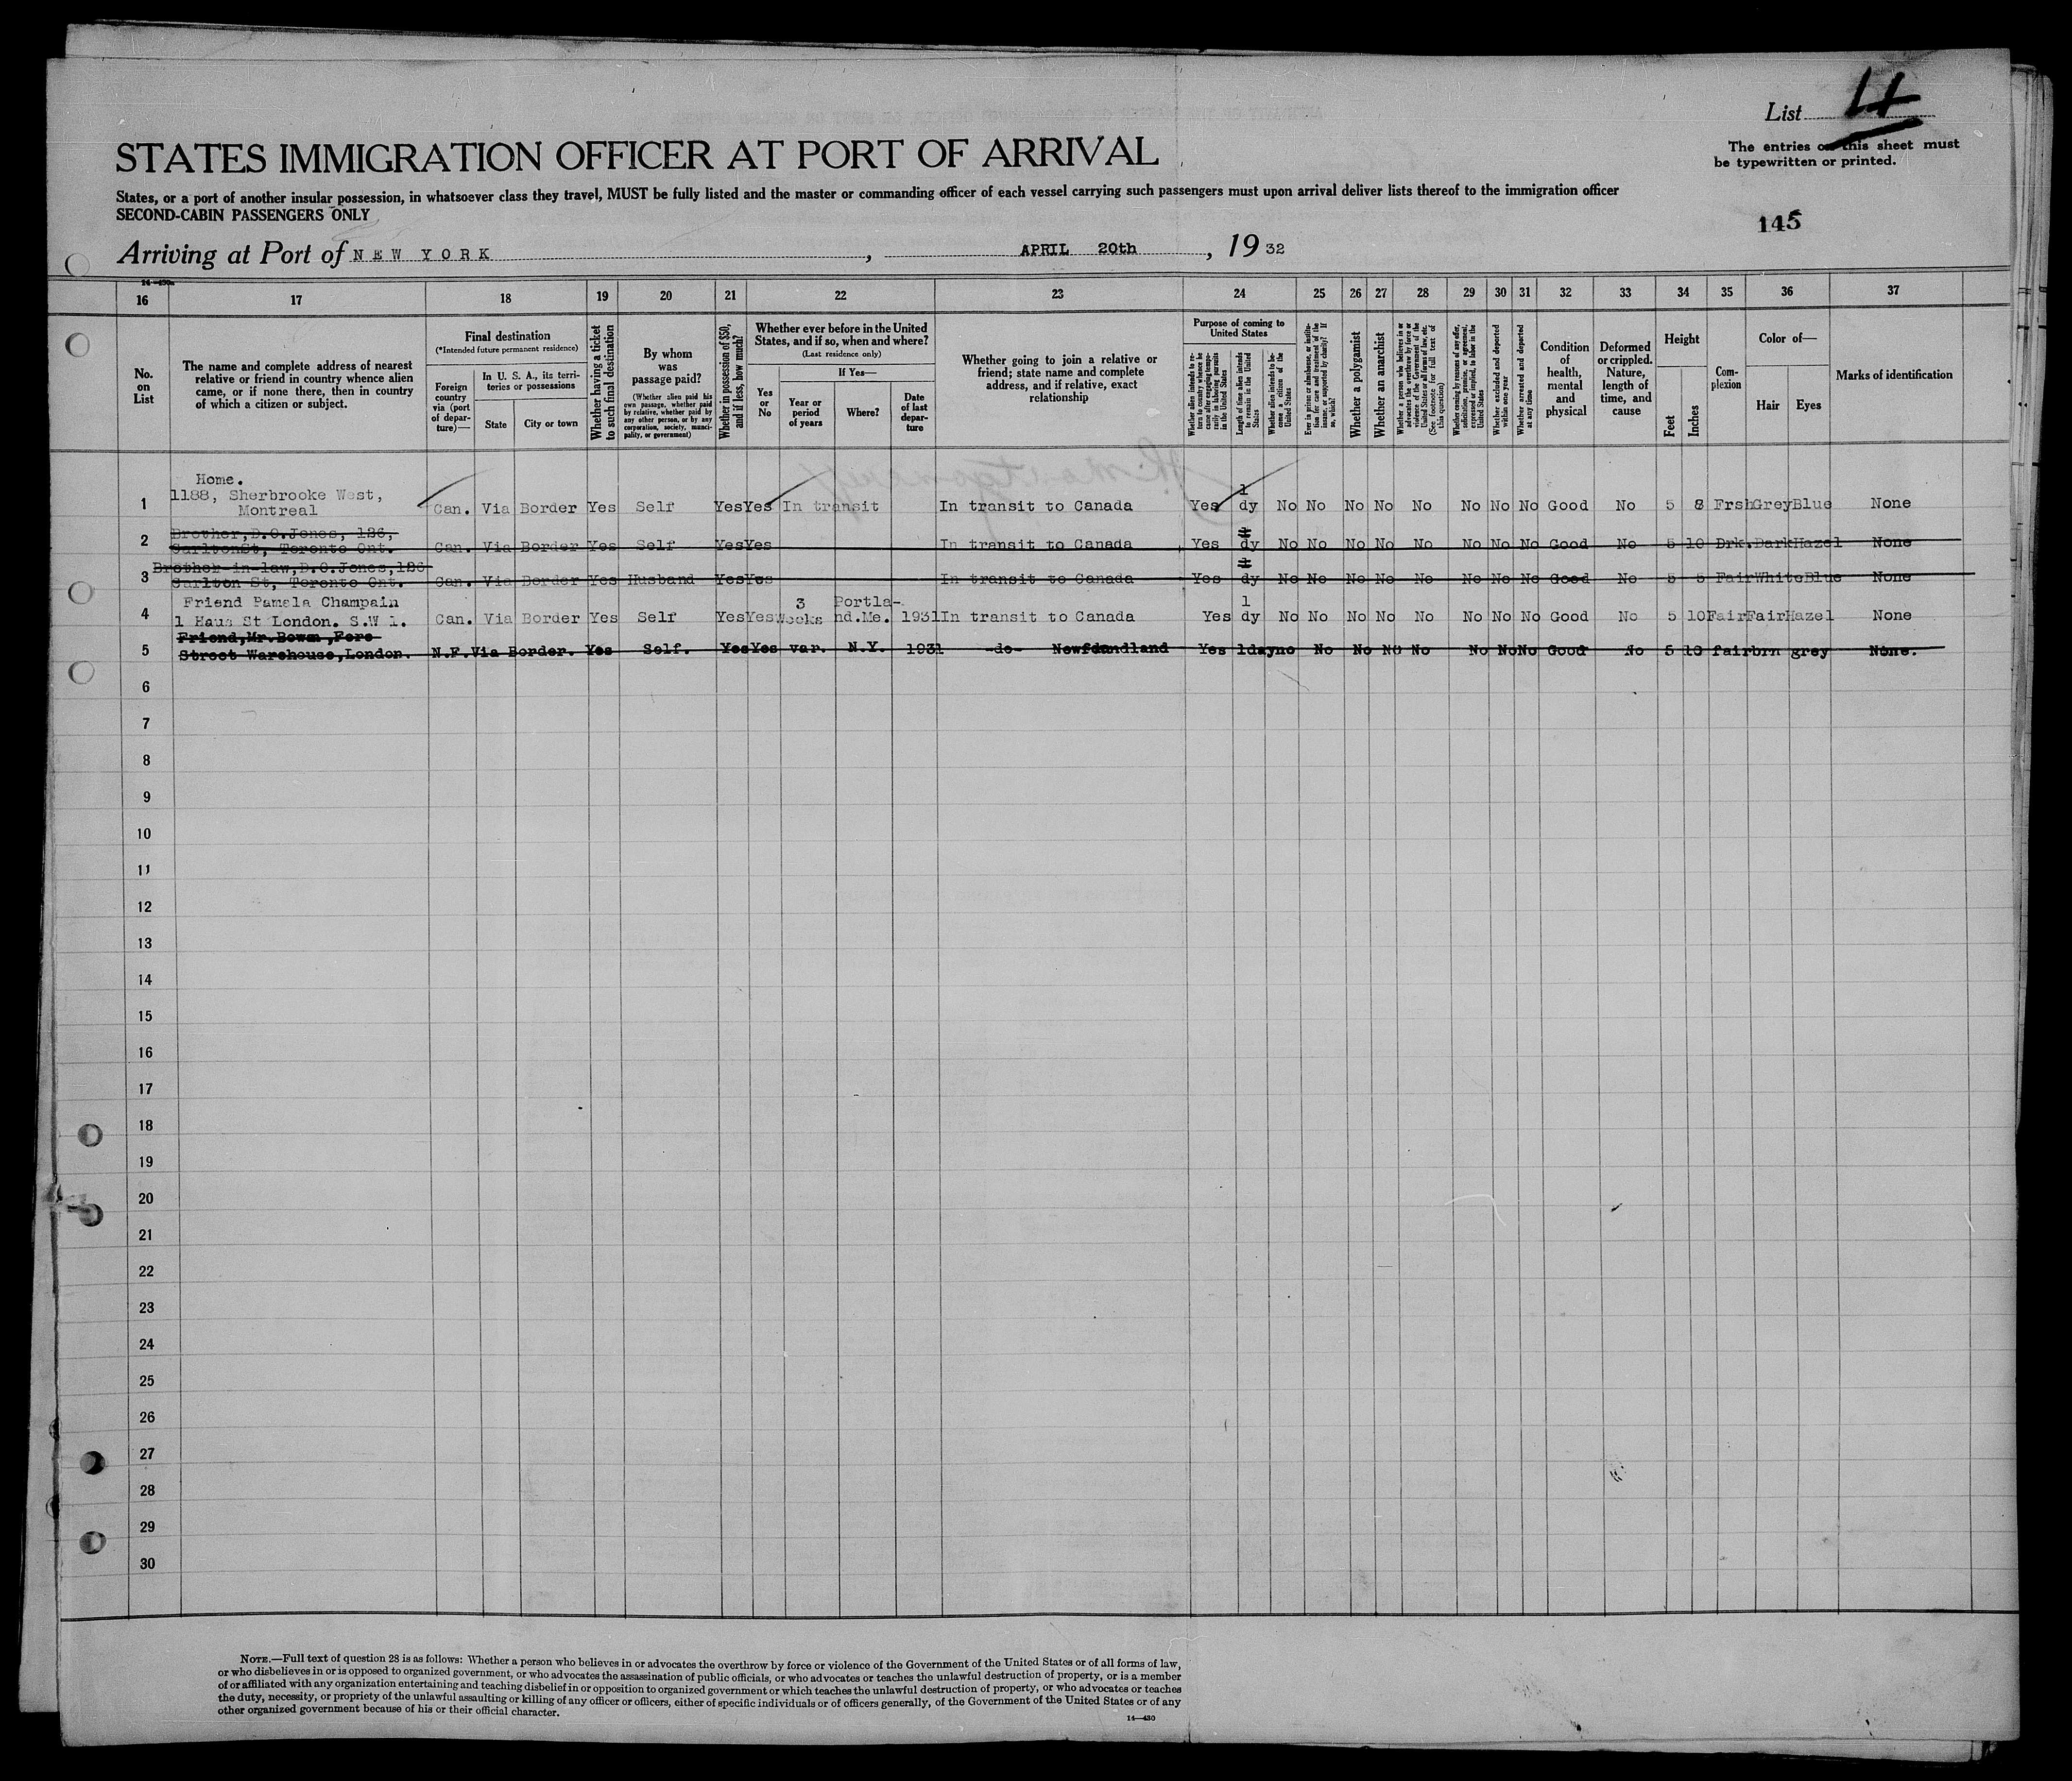 List 4
The entries on this sheet must
be typewritten or printed.
STATES IMMIGRATION OFFICER AT PORT OF ARRIVAL
States, or a port of another insular possession, in whatsoever class they travel, MUST be fully listed and the master or commanding officer of each vessel carrying such passengers must upon arrival deliver lists thereof to the immigration officer
SECOND-CABIN PASSENGERS ONLY
145
Arriving at Port of NEW YORK, APRIL 20th, 1932
16 17 18 19 20 21 22 23 24 25 26 27 28 29 30 31 32 33 34 35 36 37
No. on List
The name and complete address of nearest
relative or friend in country whence alien
came, or if none there, then in country
of which a citizen or subject.
Final destination
(*Intended future permanent residence)
Foreign
country
via (port
of depar-
ture)—
In U. S. A., its terri-
tories or possessions
State
City or town
Whether having a ticket
to such final destination
By whom
was
passage paid?
(Whether alien paid his
own passage, whether paid
by relative, whether paid by
any other person, or by any
corporation, society, munici-
pality, or government)
Whether in possession of $50,
and if less, how much?
Whether ever before in the United
States, and if so, when and where?
(Last residence only)
Yes
or
No
If Yes—
Year or
period
of years
Where?
Date
of last
depar-
ture
Whether going to join a relative or
friend; state name and complete
address, and if relative, exact
relationship
Purpose of coming to
United States
Whether alien intends to re-
turn to country whence he
came after engaging tempo-
rarily in laboring pursuits
in the United States
Length of time alien intends
to remain in the United
States
Whether alien intends to be-
come a citizen of the
United States
Ever in prison or almshouse, or institu-
tion for care and treatment of the
insane, or supported by charity? If
so, which?
Whether a polygamist
Whether an anarchist
Whether a person who believes in or
advocates the overthrow by force or
violence of the Government of the
United States or all forms of law, etc.
(See footnote for full text of
this question)
Whether coming by reason of any offer,
solicitation, promise, or agreement,
expressed or implied, to labor in the
United States
Whether excluded and deported
within one year
Whether arrested and deported
at any time
Condition
of
health,
mental
and
physical
Deformed
or crippled.
Nature,
length of
time, and
cause
Height
Feet
Inches
Com-
plexion
Color of—
Hair
Eyes
Marks of identification
Home.
1188, Sherbrooke West, 1
1 Montreal Can. Via Border Yes Self Yes Yes In transit In transit to Canada Yes dy No No No No No No No No Good No 5 8 Frsh Grey Blue None
Brother, D.O.Jones, 126,
2 Carlton St, Toronto Ont. Can. Via Border Yes Self Yes Yes In transit to Canada Yes dy No No No No No No No No Good No 5 10 Drk. Dark Hazel None
Brother-in-law, D.O.Jones, 126
3 Carlton St, Toronto Ont. Can. Via Border Yes Husband Yes Yes In transit to Canada Yes dy No No No No No No No No Good No 5 5 Fair White Blue None
Friend Pamela Champain 3 Portla- 1
4 1 Haus St London. S.W 1. Can. Via Border Yes Self Yes Yes Weeks nd.Me. 1931 In transit to Canada Yes dy No No No No No No No No Good No 5 10 Fair Fair Hazel None
Friend, Mr. Bowm, Fore
5 Street Warehouse, London. N.F. Via Border. Yes Self. Yes Yes var. N.Y. 1931 -do- Newfdandland Yes 1day no No No No No No No No Good No 5 10 fair brn grey None.
6
7
8
9
10
11
12
13
14
15
16
17
18
19
20
21
22
23
24
25
26
27
28
29
30
NOTE.—Full text of question 28 is as follows: Whether a person who believes in or advocates the overthrow by force or violence of the Government of the United States or of all forms of law,
or who disbelieves in or is opposed to organized government, or who advocates the assassination of public officials, or who advocates or teaches the unlawful destruction of property, or is a member
of or affiliated with any organization entertaining and teaching disbelief in or opposition to organized government or which teaches the unlawful destruction of property, or who advocates or teaches
the duty, necessity, or propriety of the unlawful assaulting or killing of any officer or officers, either of specific individuals or of officers generally, of the Government of the United States or of any
other organized government because of his or their official character.
14—430